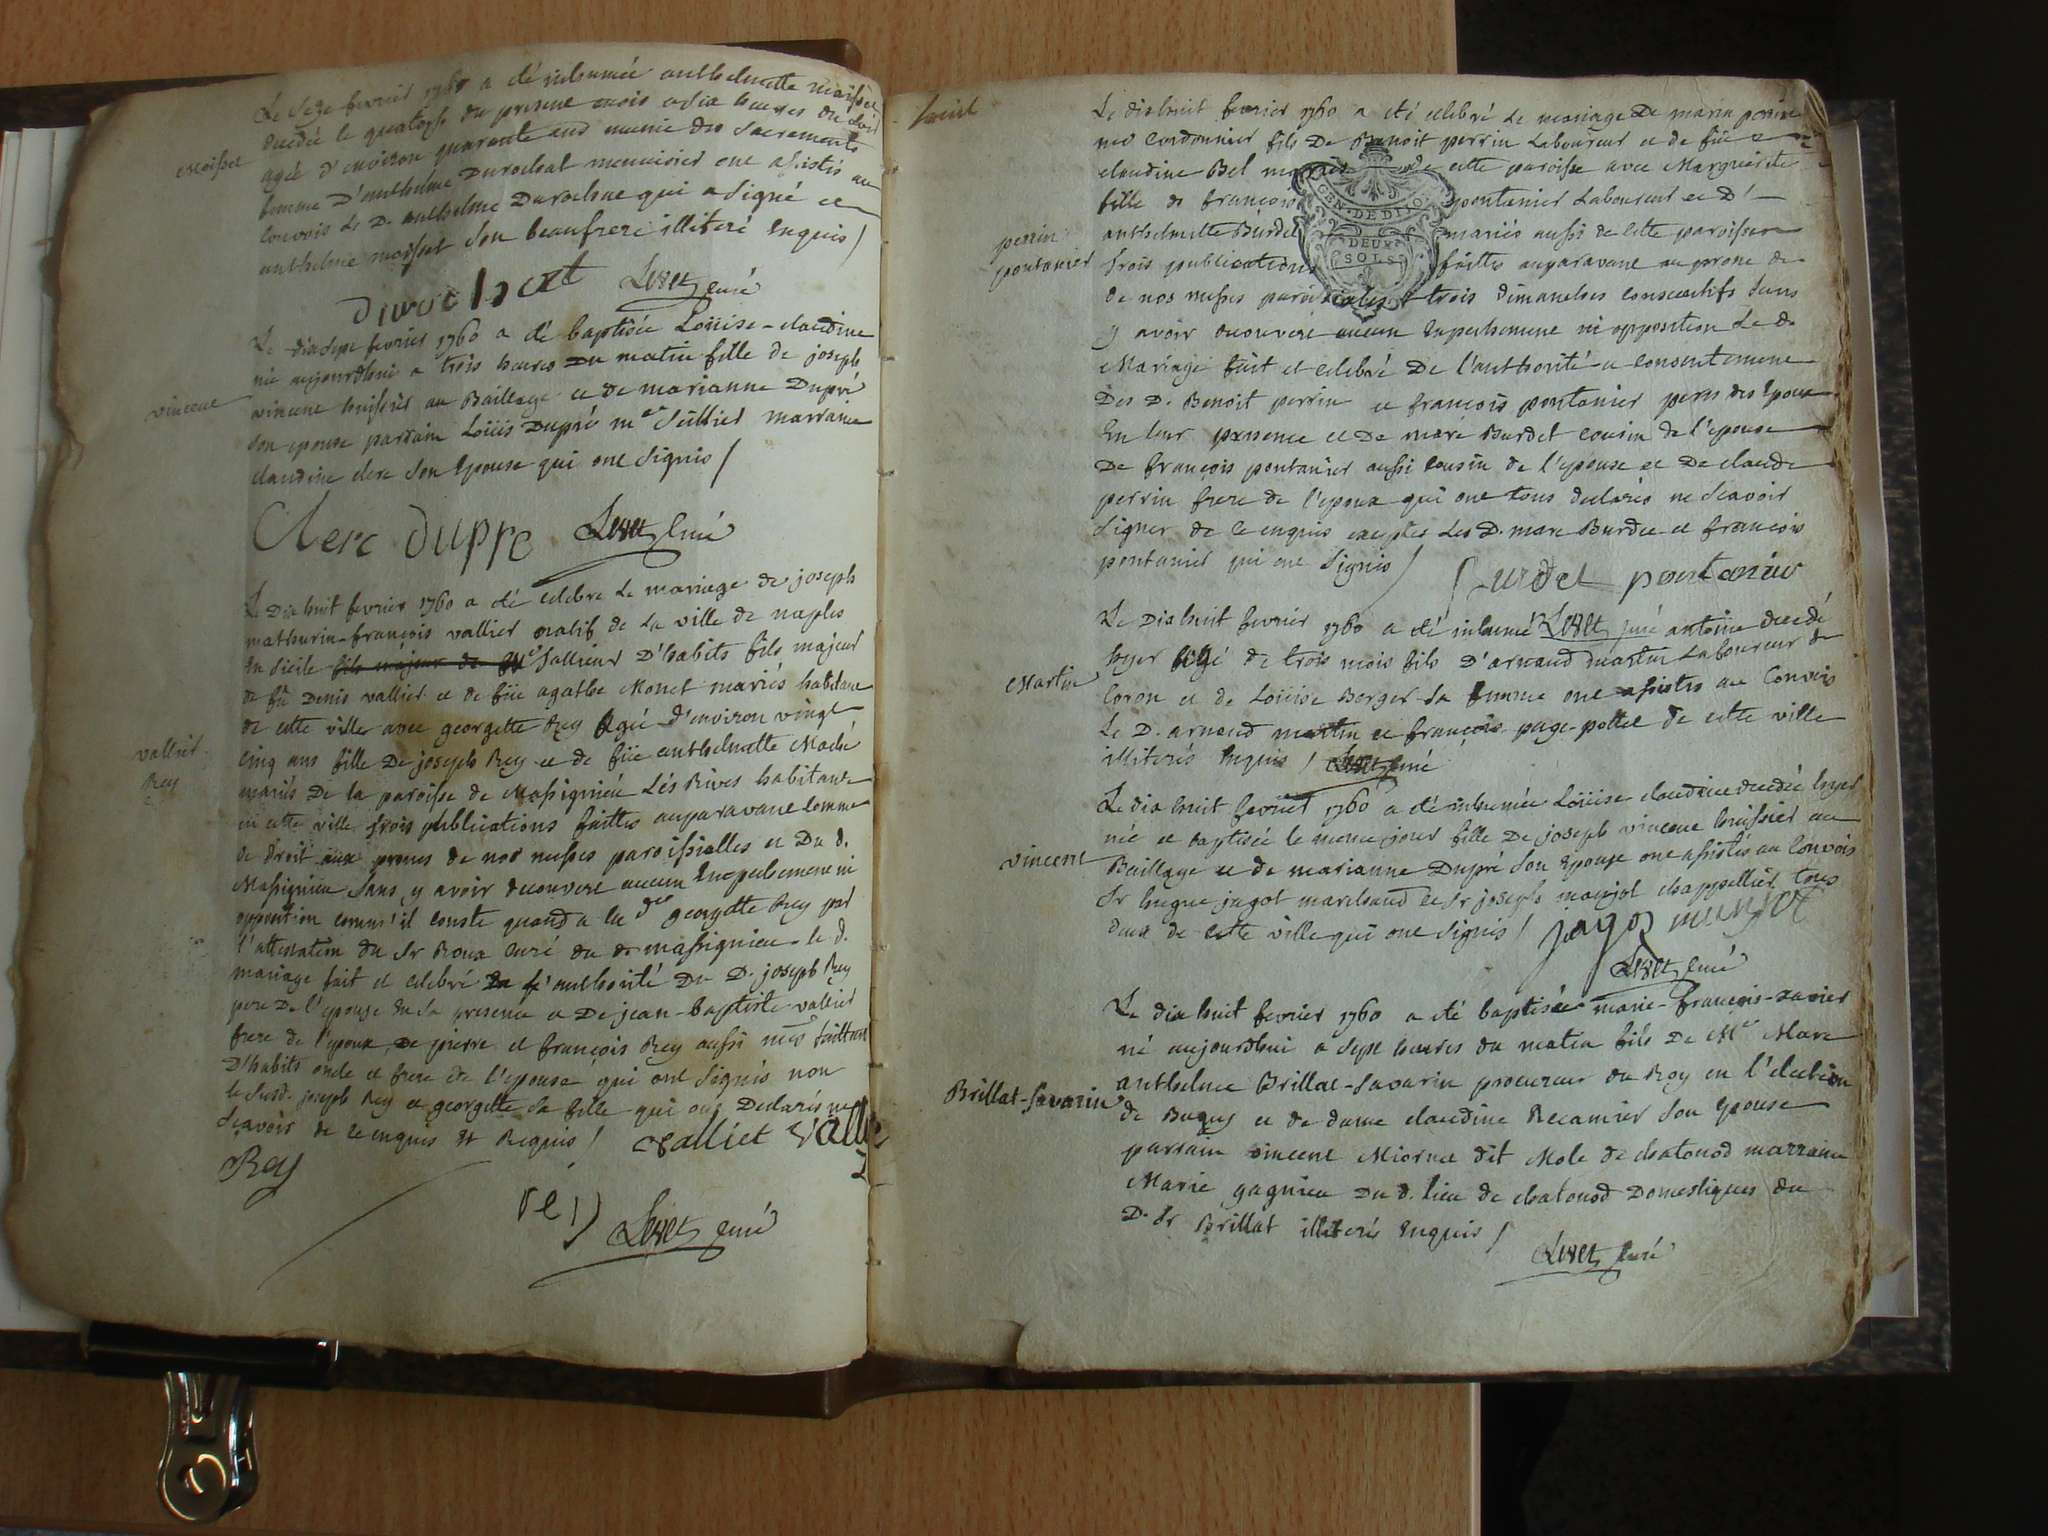 Le seze fevrier 1760 a eté inhumée anthelmette moisset
decedée le quatorze du present mois a six heures du soir
agée d'environ quarante ans munie des sacrements
femme d'anthelme Durochat menuisier ont assistés au
convois le D. anthelme Durochat qui a signé et
anthelme moisset son beaufrere illiteré Enquis /
Moisset
durochat Levet curé
Le dixsept fevrier 1760 a eté baptisée Loüise-claudine
née aujourdhui a trois heures du matin fille de joseph
vincent huissier au Baillage et de marianne Dupré
son epouse parrain Loüis Dupré me sellier marraine
claudine clerc son Epouse qui ont signés /
vincent
Clerc duppre Levet curé
Le Dix huit fevrier 1760 a eté celebré le mariage de joseph
mathurin-françois vallier natif de la ville de naples
En sicile fils majeur de Me tallieur D'habits fils majeur
de fû Denis vallier et de füe agathe Monet mariés habitant
de cette ville avec georgette Rey Agée d'environ vingt
cinq ans fille De joseph Rey et de füe anthelmette Maché
mariés De la paroisse de Massignieu Lés Rives habitante
en cette ville trois publications faittes auparavant comme
de droit aux prones de nos messes paroissialles et Du d.
Massignieu sans y avoir decouvert aucun Empechement ni
opposition comm'il conste quand a la dte georgette Rey par
l'attestation du Sr Roux curé du dt massignieu le d.
mariage fait et celebré De l'authorité Du D. joseph Rey
pere De l'epouse En sa presence et De jean-baptiste vallier
frere de l'epoux, De pierre et françois Rey aussi mes taillieurs
D'habits oncle et frere de l'epouse qui ont signés non
le susd. joseph Rey et georgette sa fille qui ont Declarés ne
sçavoir de ce enquis et Requis / vallier valli
vallier
Rey
Rey
rey
Levet curé
Le dixhuit fevrier 1760 a eté celebré le mariage De marin perrin
me Cordonnier fils De Benoit perrin Laboureur et de füe
claudine Bel mariés de cette paroisse avec Marguerite
fille de françois pontanier Laboureur et D'
anthelmette Burdet mariés aussi de cette paroisse
trois publications faittes auparavant au prone de
de nos messes paroissialles trois dimanches consecutifs sans
y avoir decouvert aucun Empechement ni opposition Le d.
Mariage fait et celebré De l'authorité et consentement
Des D. Benoit perrin et françois pontanier peres des Epoux
En leur presence et De marc Burdet cousin de l'epouse
De françois pontanier aussi cousin de l'epouse et De claude
perrin frere de l'epoux qui ont tous declarés ne sçavoir
signer de ce enquis exceptés Les D. marc Burdet et françois
pontanier qui ont signés /
perrin
pontanier
GEN. DE DIJON
DEUX
SOLS
Burdet pontanier
Levet curé
Le Dix huit fevrier 1760 a eté inhumé antoine decedé
hyer Agé de trois mois fils D'arnaud martin Laboureur de
Coron et de Loüise Berger sa femme ont assistés au Convois
Le D. arnaud martin et françois page-pottel de cette ville
illiterés Enquis / Levet curé
Martin
Le dix huit fevrier 1760 a eté inhumée Loüise claudine decedée hyer
née et baptisée le meme jour fille De joseph vincent huissier au
Baillage et de marianne Dupré son Epouse ont assistés au Convois
Sr hugue jagot marchand et Sr joseph maujot chappellier tous
deux de cette ville qui ont signés / jagot maujot
vincent
Levet curé
Le dix huit fevrier 1760 a eté baptisée marie-françois-xavier
né aujourdhui a sept heures du matin fils De Me Marc
anthelme Brillat-savarin procureur du Roy en l'election
de Bugey et de dame claudine Recamier son Epouse
parrain vincent Miornet dit Mole de chatonod marraine
Marie gagnieu Du d. lieu de chatonod Domestiques du
D. Sr Brillat illiterés Enquis /
Brillat-savarin
Levet curé